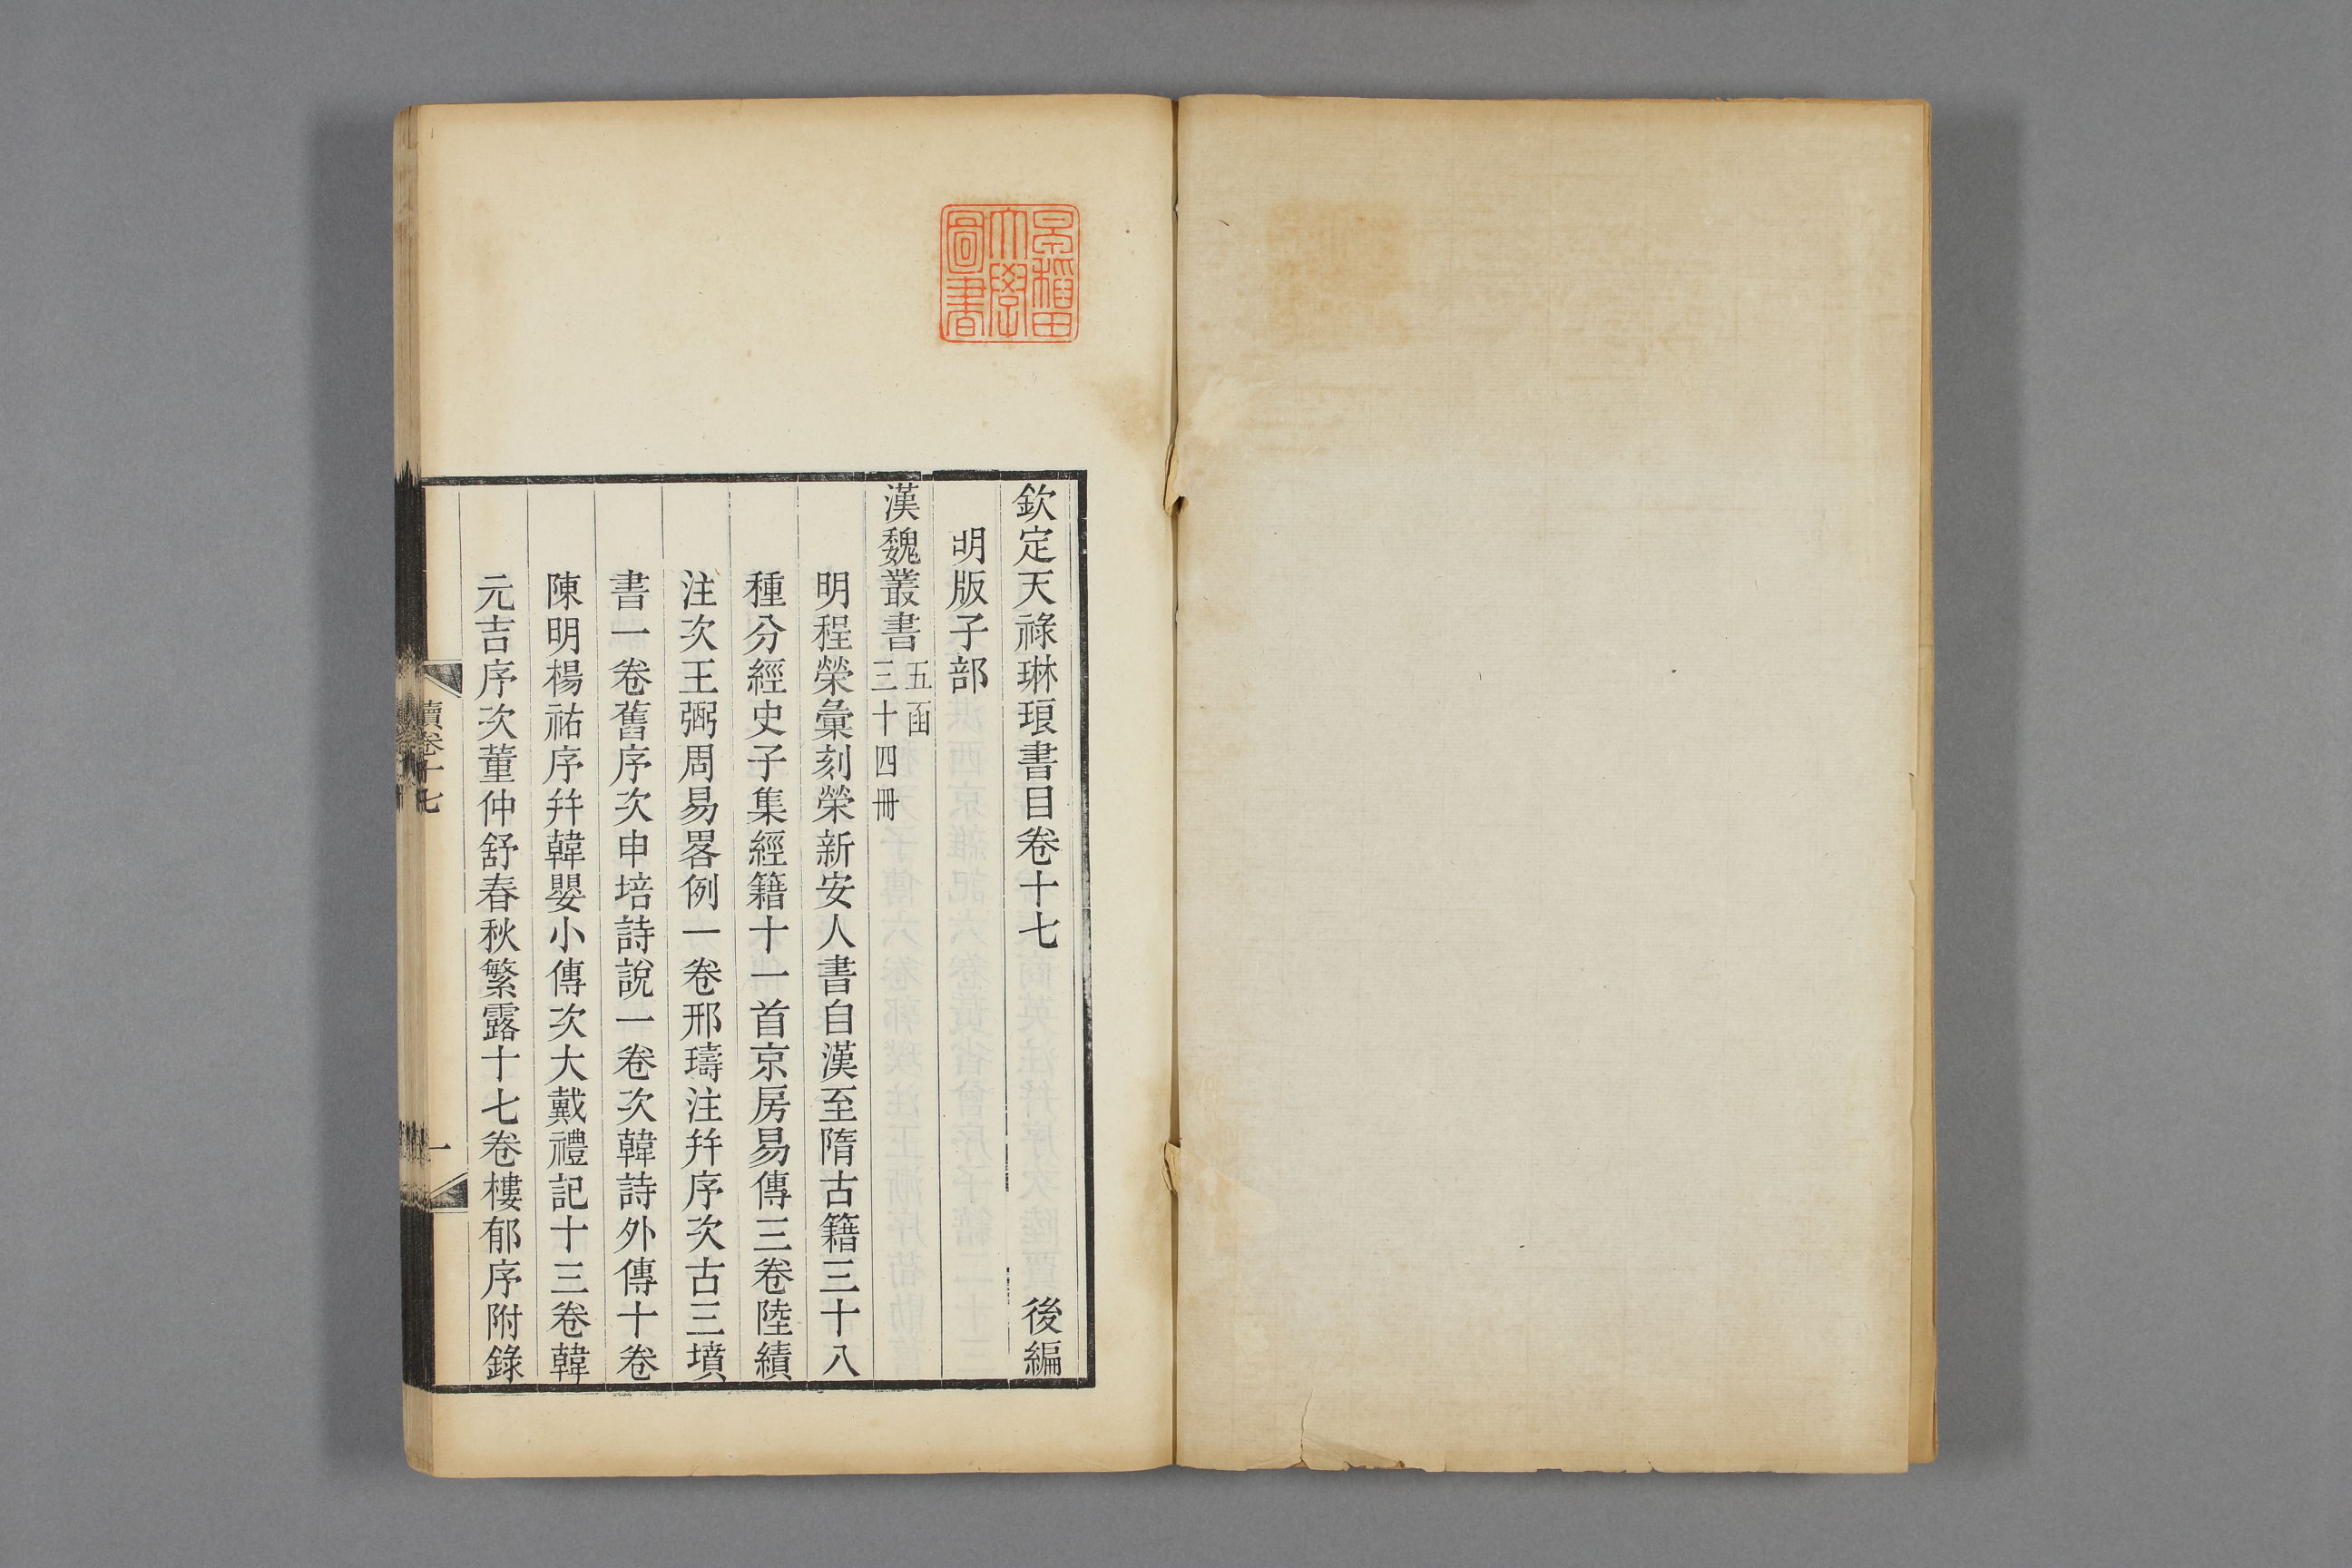 欽定天祿琳琅書目卷十七 後編
明版子部
漢魏叢書 五函 三十四冊
明程榮彙刻榮新安人書自漢至隋古籍三十八
種分經史子集經籍十一首京房易傳三卷陸績
注次王弼周易畧例一卷邢璹注幷序次古三墳
書一卷舊序次申培詩說一卷次韓詩外傳十卷
陳明楊祐序幷韓嬰小傳次大戴禮記十三卷韓
元吉序次董仲舒春秋繁露十七卷樓郁序附錄
續卷十七
一
早稻田大學圖書